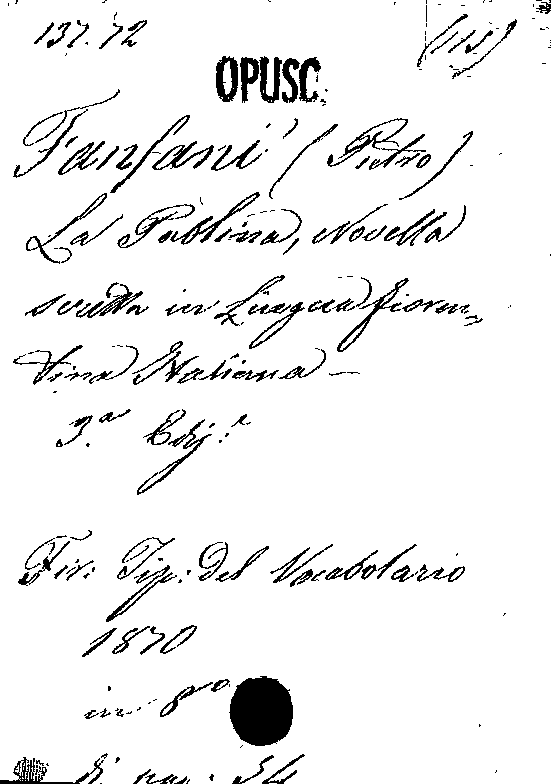 137.72 (115)
OPUSC.
Fanfani (Pietro)
La Paolina, Novella
scritta in Lingua fioren-
tina Italiana —
3.ª Ediz:ᵉ
Fir: Tip: del Vocabolario
1870
in 8º
di pag: 54